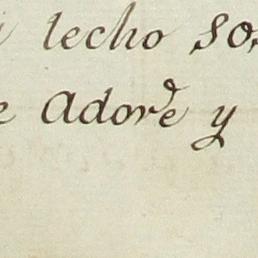 lecho so
e Adoré y